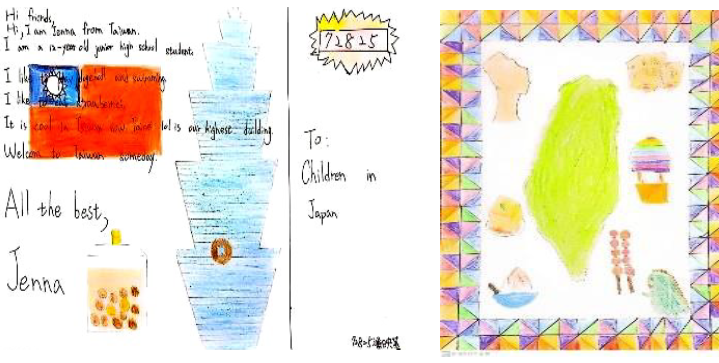 Hi friends,
Hi, I am Jenna from Taiwan.
I am a 12-year old junior high school student.
I like dodgeball and swimming.
I like strawberries.
It is cool in Taiwan now. Taipei 101 is our highest building.
Welcome to Taiwan someday.
All the best,
Jenna
72825
To:
Children in
Japan